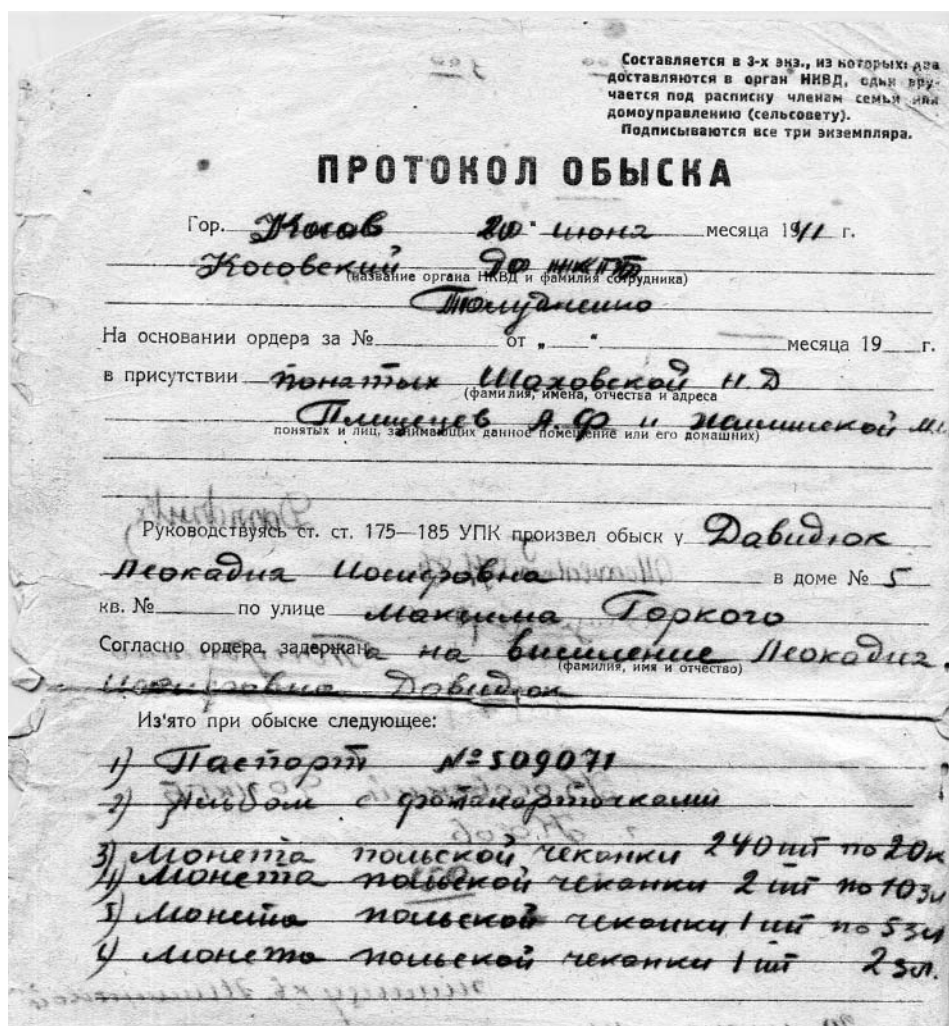 Составляется в 3-х экз., из которых: два
доставляются в орган НКВД, один вру-
чается под расписку членам семьи или
домоуправлению (сельсовету).
Подписываются все три экземпляра.
ПРОТОКОЛ ОБЫСКА
Гор. Косов 20 " июня месяца 1941 г.
Косовский РО НКГБ
(название органа НКВД и фамилия сотрудника)
На основании ордера за № от „ “ месяца 19 г.
в присутствии понятых Шаховской Н.Д
(фамилия, имена, отчества и адреса
Плищецев А.Ф и
понятых и лиц, занимающих данное помещение или его домашних)
Руководствуясь ст. ст. 175—185 УПК произвел обыск у Давидюк
Леокадиа Иосифовна в доме № 5
кв. № по улице Максима Горкого
Согласно ордера, задержана на висиление Леокадиа
(фамилия, имя и отчество)
Иосифовна Давидюк
Из'ято при обыске следующее:
1) Паспорт № 509071
2) Альбом с фотокарточками
3) Монета польской чеканки 240 шт по 20к
4) Монета польской чеканки 2 шт по 10 зл
5) Монета польской чеканки 1 шт по 5 зл
монета польской чеканки 1 шт 2 зл.